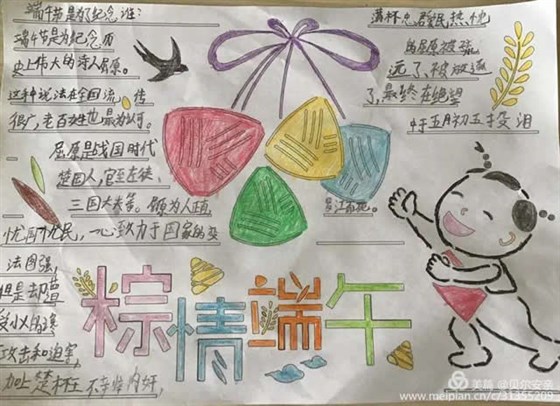 端午节是为了纪念谁:
端午节是为纪念历
史上伟大的诗人屈原。
这种说法在全国流传
很广,老百姓也最为认可。
屈原是战国时代
楚国人,官至左徒、
三闾大夫等。
忧国忧民,一心致力于国家的变
法图强,
但是却遭
受小人的
攻击和迫害,
加上楚怀王
满怀忠君爱民热忱
的屈原被疏
远了,被放逐
了,最终在绝望
中于五月初五投汨
罗江而死。
粽情端午
美篇 @贝尔安亲
www.meipian.cn/c/31355209